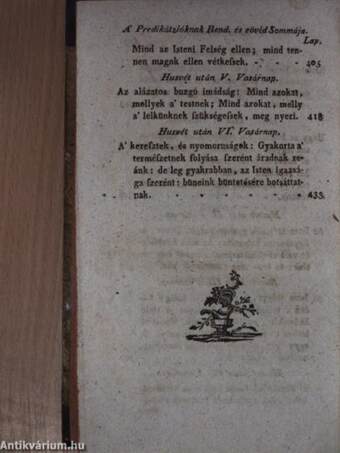 A' Predikátzióknak Rend. és rövid Sommája.
Lap.
Mind az Isteni Felség ellen; mind ten-
nen magok ellen vétkeſsek. - - - 405
Husvét után V. Vasárnap.
Az alázatos buzgó imádság: Mind azokat,
mellyek a' testnek; Mind azokat, melly
a' lelkünknek szükségeſsek, meg nyeri. 418
Husvét után VI. Vasárnap.
A' keresztek, és nyomorúságok: Gyakorta a'
természetnek folyása szerént áradnak re-
ánk: de leg gyakrabban, az Isten igazsá-
ga szerént: bűneink büntetésére botsáttat-
nak. - - - - - - 435
Antikvárium.hu